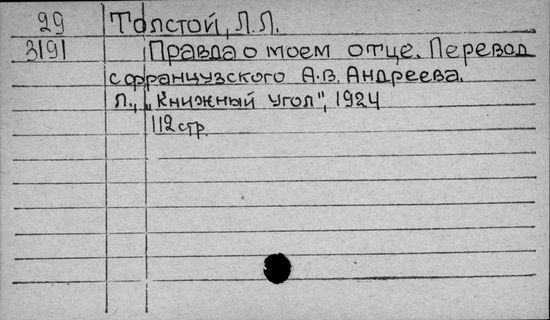 29 Толстой, Л.Л.
3191 Правда о моем отце. Перевод
с французского А.В. Андреева.
Л., „Книжный угол", 1924
112 стр.